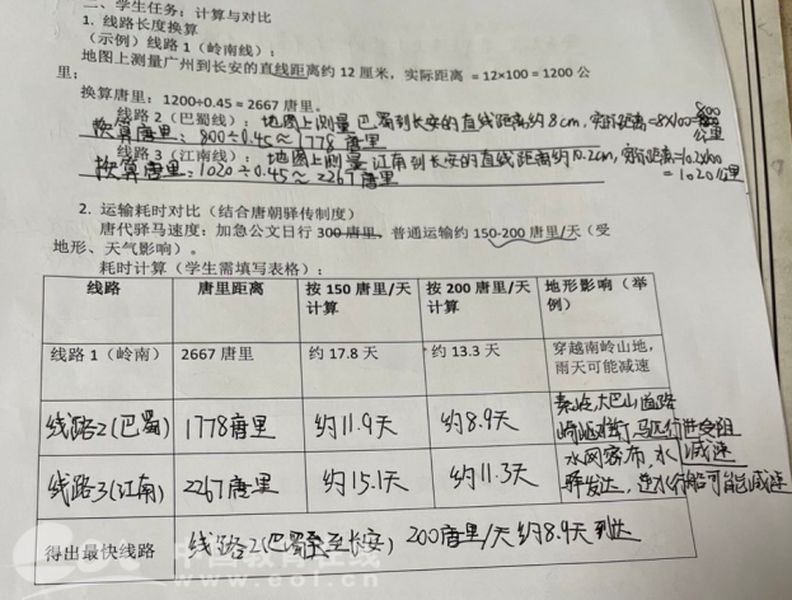 二、学生任务：计算与对比
1. 线路长度换算
（示例）线路 1（岭南线）：
地图上测量广州到长安的直线距离约 12 厘米，实际距离 = 12×100 = 1200 公
里；
换算唐里：1200÷0.45 ≈ 2667 唐里。
线路 2（巴蜀线）：地图上测量巴蜀到长安的直线距离约8cm，实际距离=8×100=800
公里
换算唐里：800÷0.45≈1778 唐里
线路 3（江南线）：地图上测量江南到长安的直线距离约10.2cm，实际距离=10.2×100
=1020公里
换算唐里：1020÷0.45≈2267唐里
2. 运输耗时对比（结合唐朝驿传制度）
唐代驿马速度：加急公文日行 300 唐里，普通运输约 150-200 唐里/天（受
地形、天气影响）。
耗时计算（学生需填写表格）：
线路 唐里距离 按 150 唐里/天计算 按 200 唐里/天计算 地形影响（举例）
线路 1（岭南） 2667 唐里 约 17.8 天 约 13.3 天 穿越南岭山地，雨天可能减速
线路2（巴蜀） 1778唐里 约11.9天 约8.9天 秦岭，大巴山道路崎岖 马匹行进受阻 减速
线路3（江南） 2267唐里 约15.1天 约11.3天 水网密布，水驿发达，逆水行船可能减速
得出最快线路 线路2（巴蜀至长安）200唐里/天约8.9天到达
中国教育在线
www.eol.cn